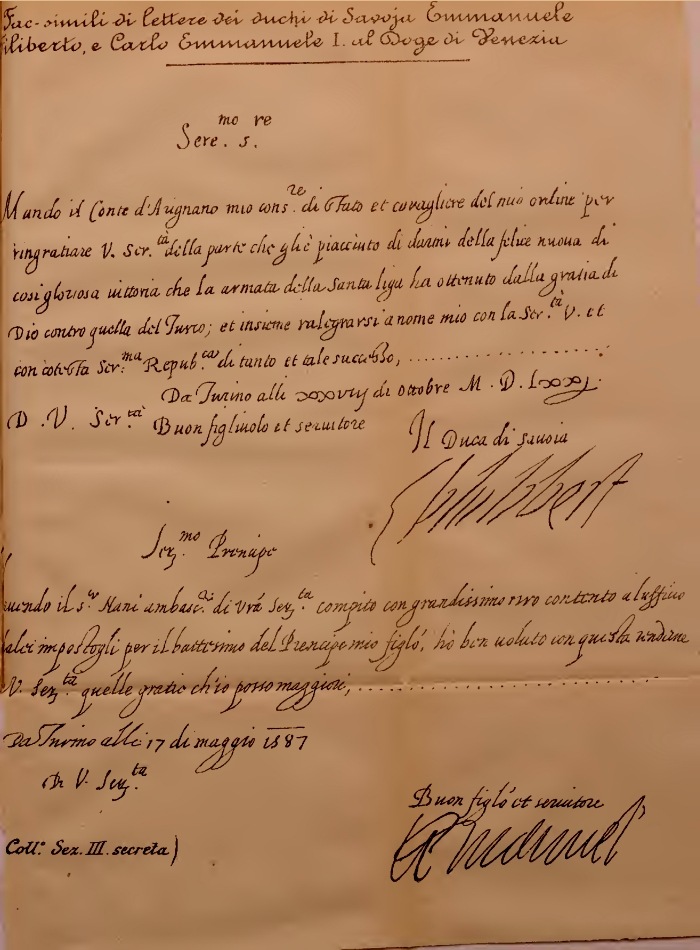 Fac-simili di lettere dei duchi di Savoja Emmanuele
iliberto, e Carlo Emmanuele I. al Doge di Venezia
Sere.mo s.re
Mando il Conte d'Augnano mio cons.re di stato et cavagliere del mio ordine per
ringratiare V. Ser.tà della parte che gli è piacciuto di darmi della felice nuova di
cosi gloriosa uittoria che la armata della santa liga ha ottenuto dalla gratia di
Dio contro quella del Turco; et insieme ralegrarsi a nome mio con la Ser.tà V. et
con cotesta Ser.ma Repub.ca di tanto et tale successo, ....................
Da Turino alli xxviij di ottobre M. D. Lxxj.
D. V. Ser.tà Buon figliuolo et seruitore
Il Duca di sauoia
Philibbert
Ser.mo Prencipe
uendo il s.r Mani ambasc.r di Vrã Ser.ta compito con grandissimo contento a l'ufficio
impostogli per il battesimo del Prencipe mio figlo, hò ben uoluto con questa
V. Ser.tà quelle gratie ch'io posso maggiori, ..............................
Da Turino alli 17 di maggio 1587
Di V. Ser.ta
Buon figlo et seruitore
Coll.o Sez. III. secreta)